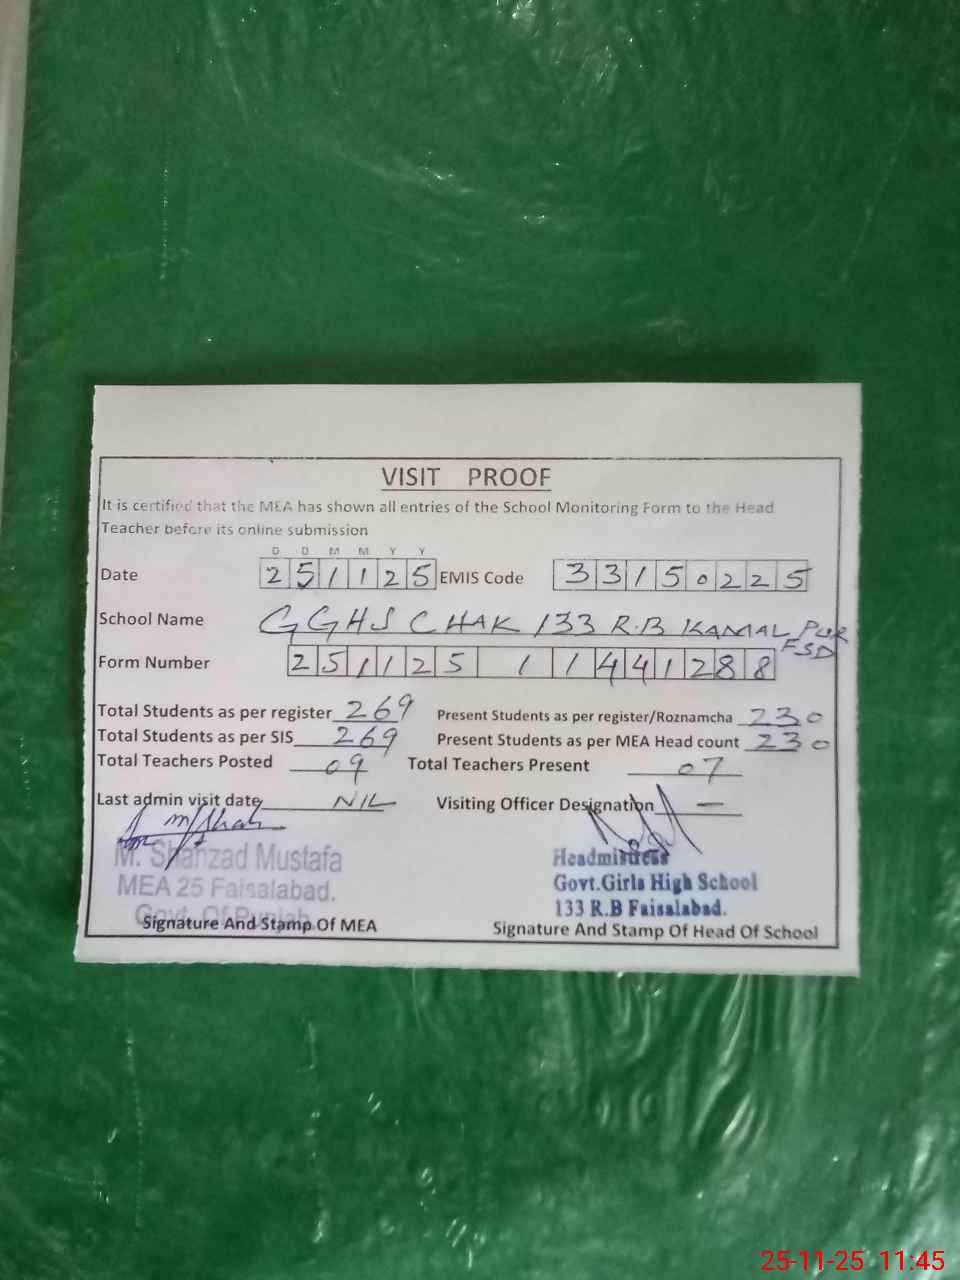 VISIT PROOF
It is certified that the MEA has shown all entries of the School Monitoring Form to the Head
Teacher before its online submission
D D M M Y Y
Date 251125 EMIS Code 33150225
School Name GGHS CHAK 133 R.B KAMAL PUR
FSD
Form Number 251125 11441288
Total Students as per register 269 Present Students as per register/Roznamcha 230
Total Students as per SIS 269 Present Students as per MEA Head count 230
Total Teachers Posted 09 Total Teachers Present 07
Last admin visit date NIL Visiting Officer Designation —
M. Shahzad Mustafa
MEA 25 Faisalabad.
Govt. Of Punjab
Signature And Stamp Of MEA
Headmistress
Govt.Girls High School
133 R.B Faisalabad.
Signature And Stamp Of Head Of School
25-11-25 11:45